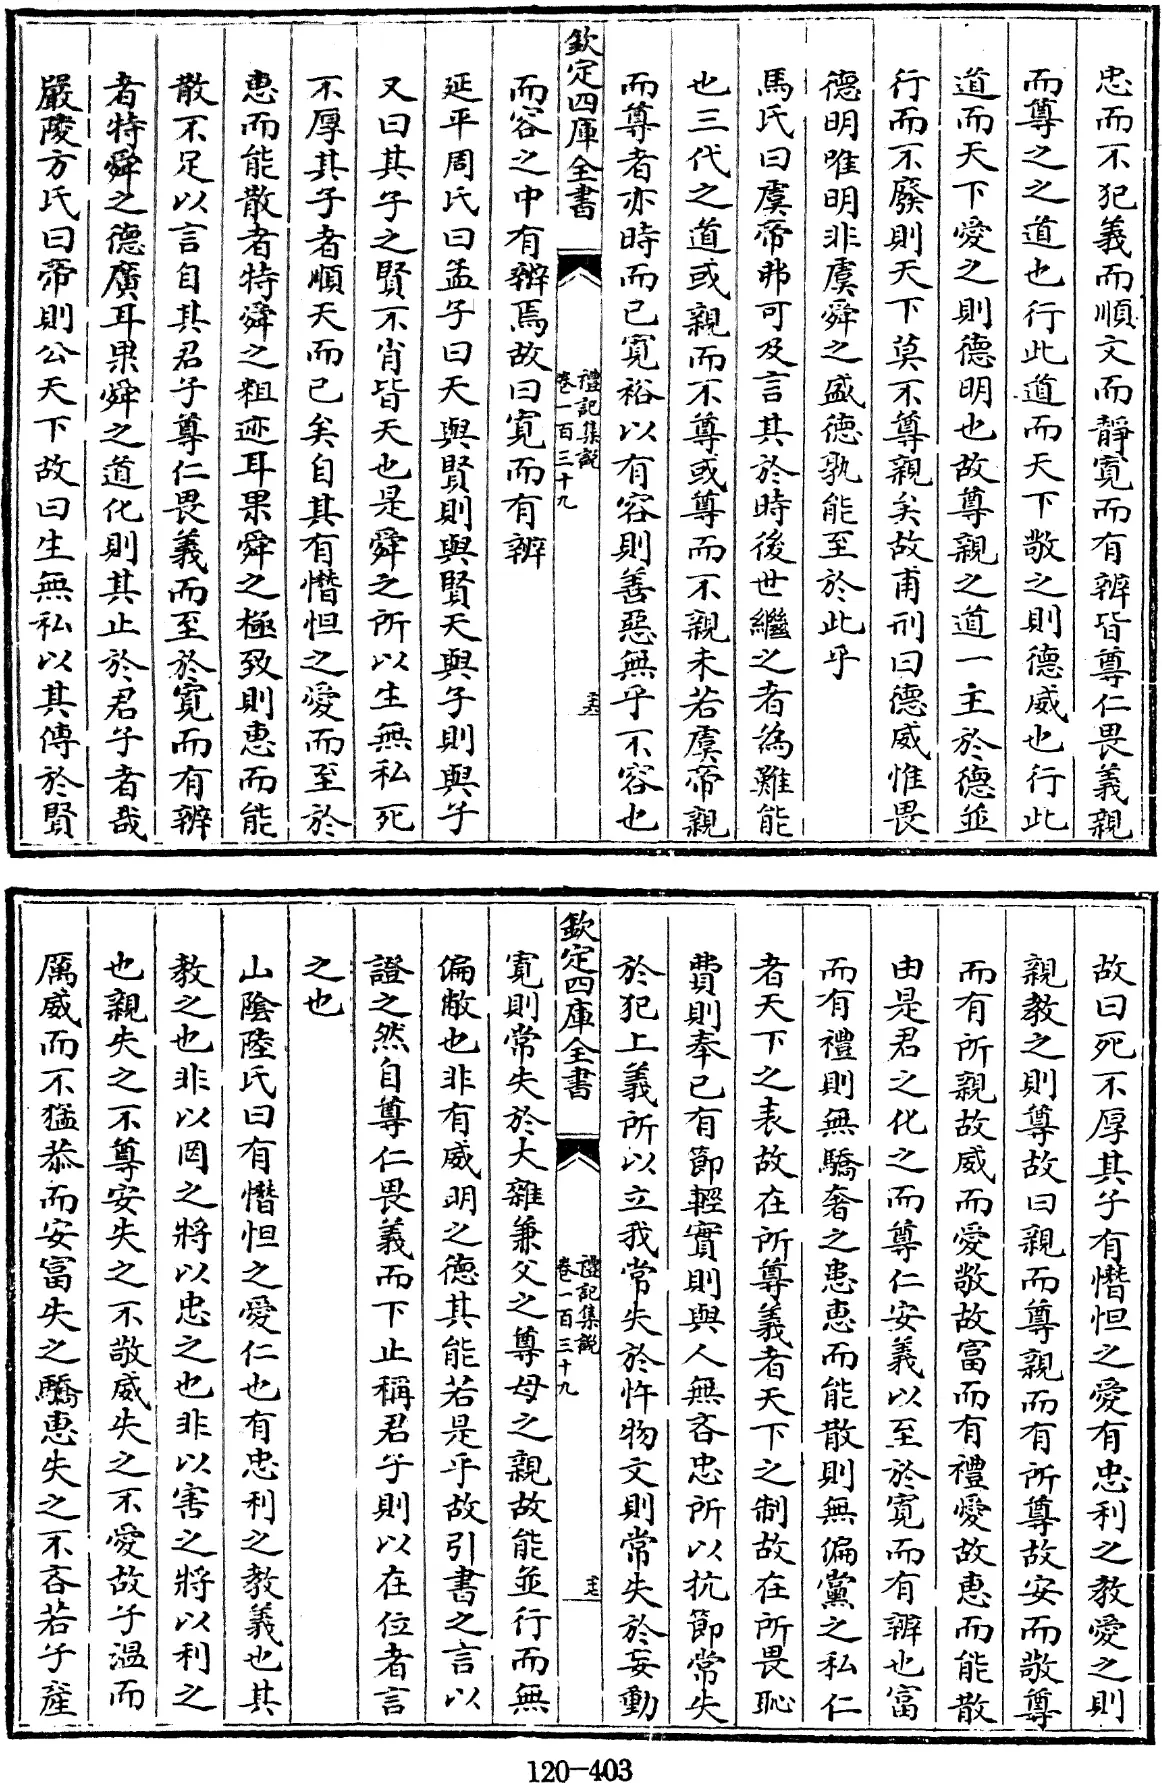 忠而不犯義而順文而靜寬而有辨皆尊仁畏義親
而尊之之道也行此道而天下敬之則德威也行此
道而天下愛之則德明也故尊親之道一主於德並
行而不廢則天下莫不尊親矣故甫刑曰德威惟畏
德明唯明非虞舜之盛德孰能至於此乎
馬氏曰虞帝弗可及言其於時後世繼之者為難能
也三代之道或親而不尊或尊而不親未若虞帝親
而尊者亦時而已寬裕以有容則善惡無乎不容也
欽定四庫全書
禮記集説
卷一百三十九
而容之中有辨焉故曰寬而有辨
延平周氏曰孟子曰天與賢則與賢天與子則與子
又曰其子之賢不肖皆天也是舜之所以生無私死
不厚其子者順天而已矣自其有憯怛之愛而至於
惠而能散者特舜之粗迹耳果舜之極致則惠而能
散不足以言自其君子尊仁畏義而至於寬而有辨
者特舜之德廣耳果舜之道化則其止於君子者哉
嚴陵方氏曰帝則公天下故曰生無私以其傳於賢
故曰死不厚其子有憯怛之愛有忠利之教愛之則
親教之則尊故曰親而尊親而有所尊故安而敬尊
而有所親故威而愛敬故富而有禮愛故惠而能散
由是君之化之而尊仁安義以至於寬而有辨也富
而有禮則無驕奢之患惠而能散則無偏黨之私仁
者天下之表故在所尊義者天下之制故在所畏恥
費則奉已有節輕實則與人無吝忠所以抗節常失
於犯上義所以立我常失於忤物文則常失於妄動
欽定四庫全書
禮記集說
卷一百三十九
寬則常失於大雜兼父之尊母之親故能並行而無
偏敝也非有威明之德其能若是乎故引書之言以
證之然自尊仁畏義而下止稱君子則以在位者言
之也
山陰陸氏曰有憯怛之愛仁也有忠利之教義也其
教之也非以罔之將以忠之也非以害之將以利之
也親失之不尊安失之不敬威失之不愛故子溫而
厲威而不猛恭而安富失之驕惠失之不吝若子產
120-403